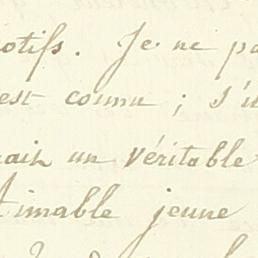 otifs. Je ne pa
est connu ; s'i
rait un véritable
timable jeune